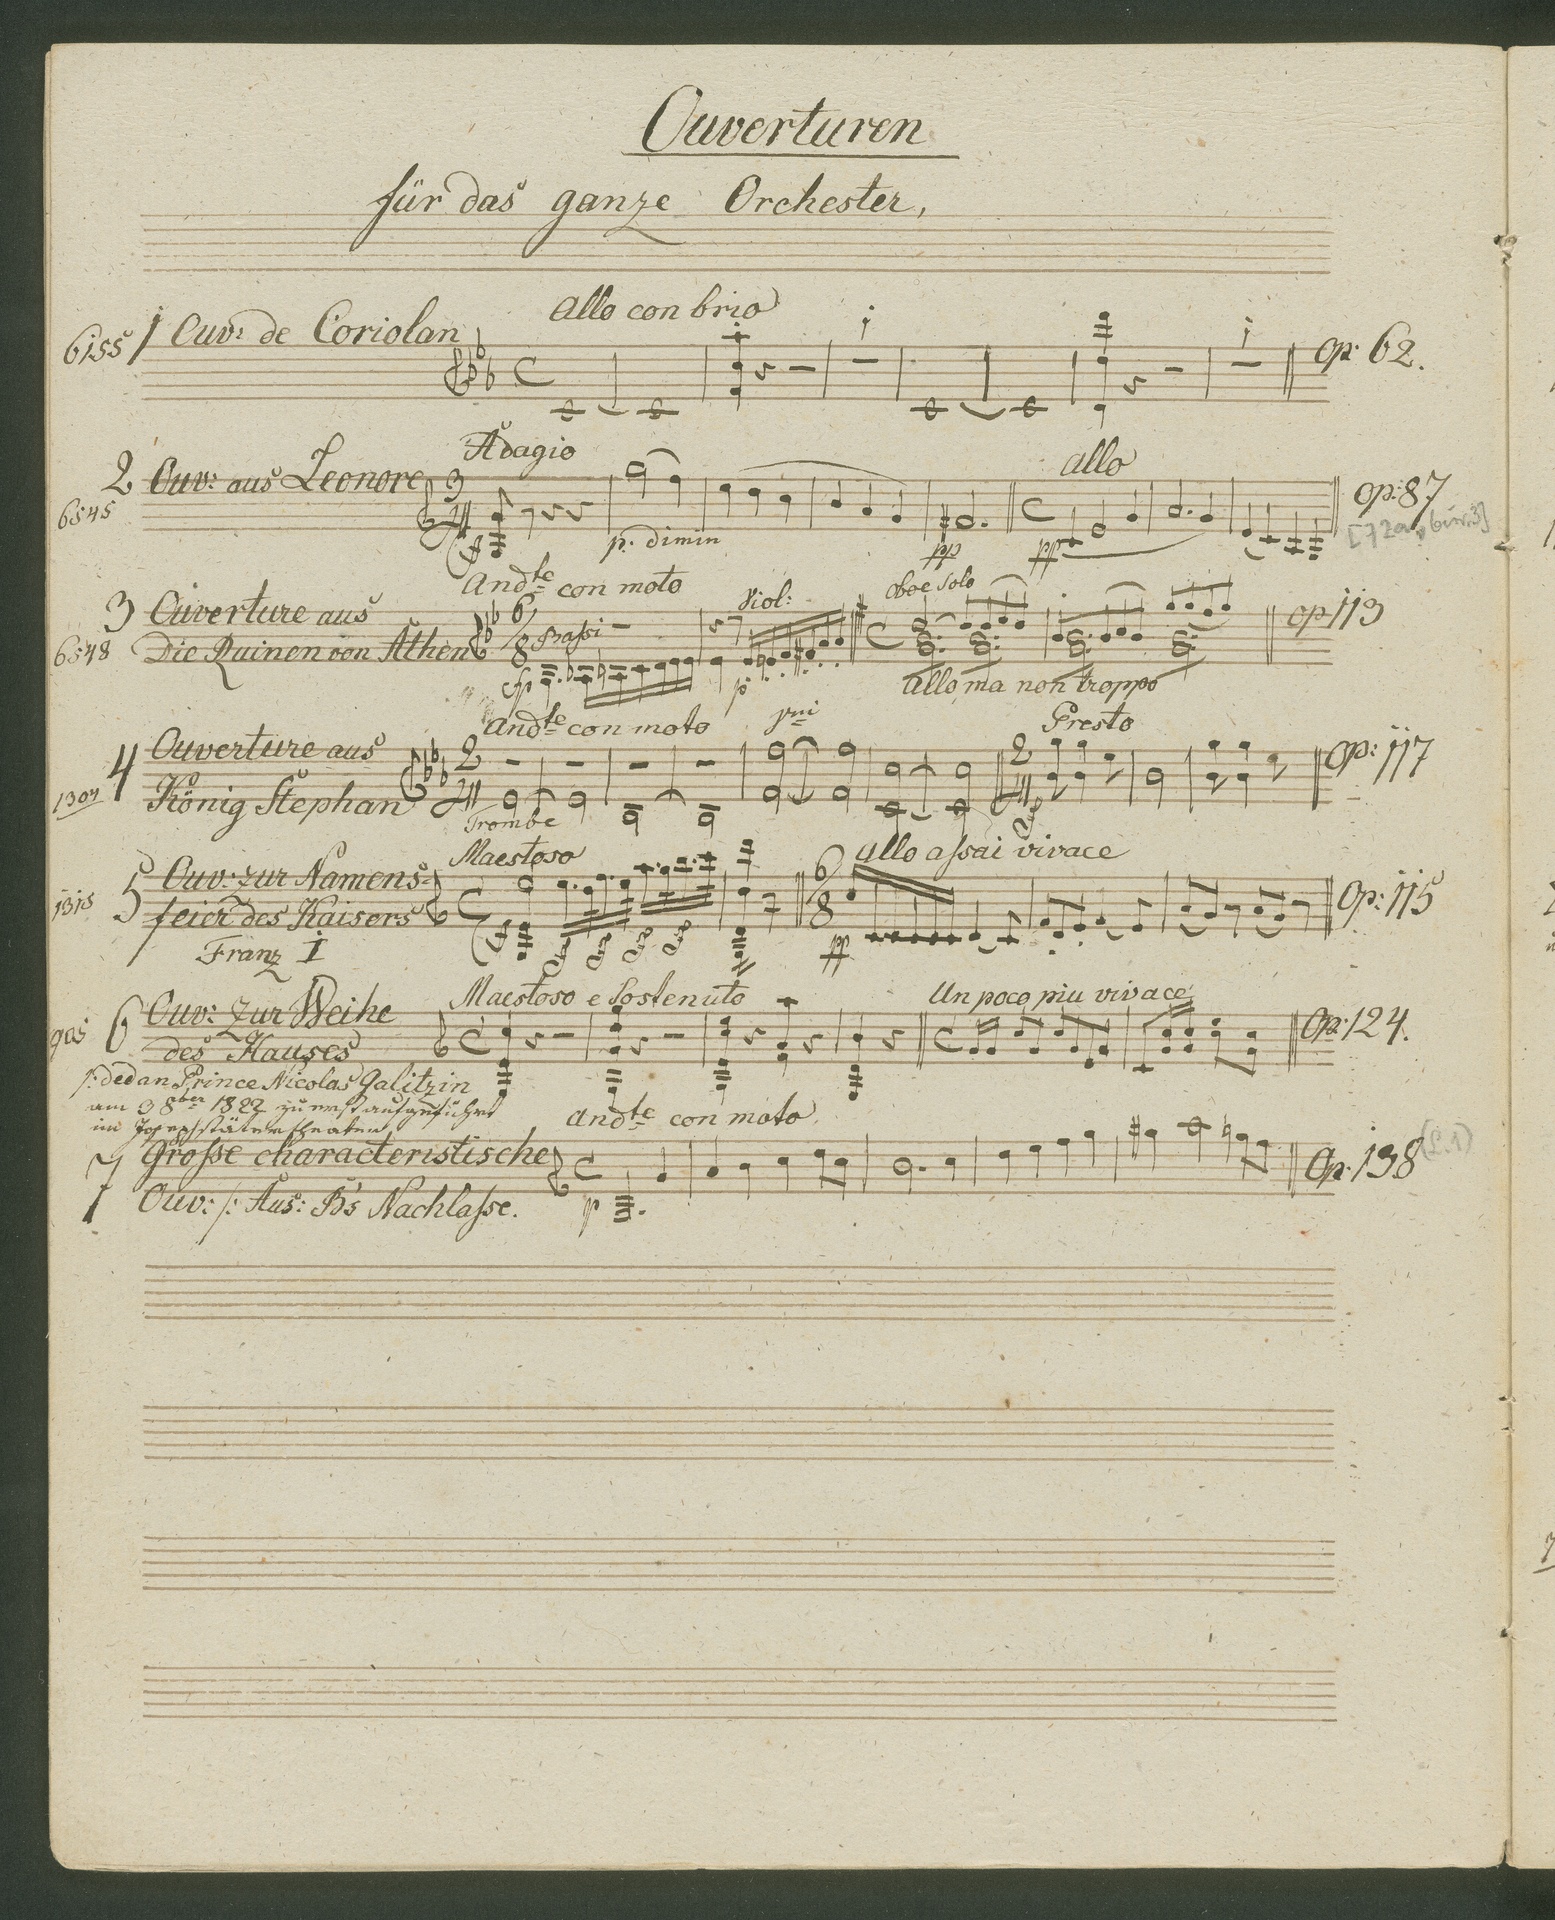 Ouverturen
für das ganze Orchester,
allo con brio
6155 1 Ouv: de Coriolan op: 62.
Adagio allo
2 Ouv: aus Leonore op: 87
6545 p. dimin pp pp
Andte con moto Viol: oboe solo
3 Ouverture aus op 113
6548 Die Ruinen von Athen Bassi
fp p Allo ma non troppo
Andte con moto Presto
4 Ouverture aus op: 117
König Stephan
Trombe
Maestoso allo assai vivace
1315 5 Ouv: zur Namens= Op: 115
feier des Kaisers
Franz I pp
Maestoso e Sostenuto Un poco piu vivace
6 Ouv: zur Weihe Op: 124.
des Hauses
/: ded an Prince Nicolas Galitzin
am 3 8ber 1822 zu erst aufgeführt
im Josephstäter theater
andte con moto
7 Große characteristische Op. 138
Ouv: /: Aus: B's Nachlaße. p